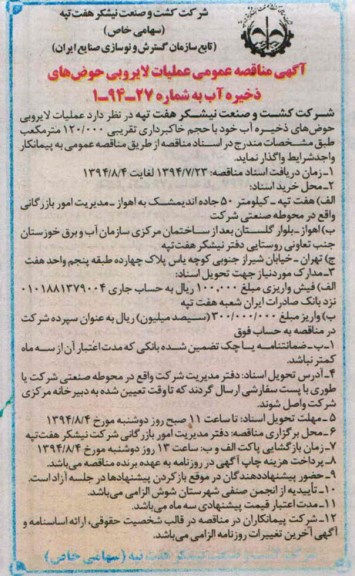 شرکت کشت و صنعت نیشکر هفت تپه
(سهامی خاص)
(تابع سازمان گسترش و نوسازی صنایع ایران)
آگهی مناقصه عمومی عملیات لایروبی حوض‌های
ذخیره آب به شماره ۲۷-۹۴-۱
شرکت کشت و صنعت نیشکر هفت تپه در نظر دارد عملیات لایروبی
حوض‌های ذخیره آب خود با حجم خاکبرداری تقریبی ۱۲۰/۰۰۰ مترمکعب
طبق مشخصات مندرج در اسناد مناقصه از طریق مناقصه عمومی به پیمانکار
واجدشرایط واگذار نماید.
۱-زمان دریافت اسناد مناقصه: ۱۳۹۴/۷/۲۳ لغایت ۱۳۹۴/۸/۴
۲-محل خرید اسناد:
الف) هفت تپه - کیلومتر ۵۰ جاده اندیمشک به اهواز -مدیریت امور بازرگانی
واقع در محوطه صنعتی شرکت
ب) اهواز -بلوار گلستان بعد از ساختمان مرکزی سازمان آب و برق خوزستان
جنب تعاونی روستایی دفتر نیشکر هفت تپه
ج) تهران - خیابان شیراز جنوبی کوچه یاس پلاک چهارده طبقه پنجم واحد هفت
۳-مدارک موردنیاز جهت تحویل اسناد:
الف) فیش واریزی مبلغ ۱۰۰,۰۰۰ ریال به حساب جاری ۰۱۰۱۸۸۱۳۷۹۰۰۴
نزد بانک صادرات ایران شعبه هفت تپه
ب) واریز مبلغ ۳۰۰/۰۰۰/۰۰۰ (سیصد میلیون) ریال به عنوان سپرده شرکت
در مناقصه به حساب فوق
۱-ب-ضمانتنامه یا چک تضمین شده بانکی که مدت اعتبار آن از سه ماه
کمتر نباشد.
۴-آدرس تحویل اسناد: دفتر مدیریت شرکت واقع در محوطه صنعتی شرکت یا
طوری با پست سفارشی ارسال گردند که تا وقت تعیین شده به دبیرخانه مرکزی
شرکت واصل شوند.
۵- مهلت تحویل اسناد: تا ساعت ۱۱ صبح روز دوشنبه مورخ ۱۳۹۴/۸/۴
۶-محل برگزاری مناقصه: دفتر مدیریت امور بازرگانی شرکت نیشکر هفت‌تپه
۷- زمان بازگشایی پاکت الف و ب: ساعت ۱۳ روز دوشنبه مورخ ۱۳۹۴/۸/۴
۸-پرداخت هزینه چاپ آگهی در روزنامه به عهده برنده مناقصه می‌باشد.
۹-حضور پیشنهاددهندگان در موقع باز کردن پیشنهادها در جلسه آزاد است.
۱۰-تأییدیه از انجمن صنفی شهرستان شوش الزامی می‌باشد.
۱۱-مدت اعتبار قیمت پیشنهادی سه ماه می‌باشد.
۱۲-شرکت پیمانکاران در مناقصه در قالب شخصیت حقوقی، ارائه اساسنامه و
آگهی آخرین تغییرات روزنامه الزامی می‌باشد.
شرکت کشت و صنعت نیشکر هفت تپه (سهامی خاص)